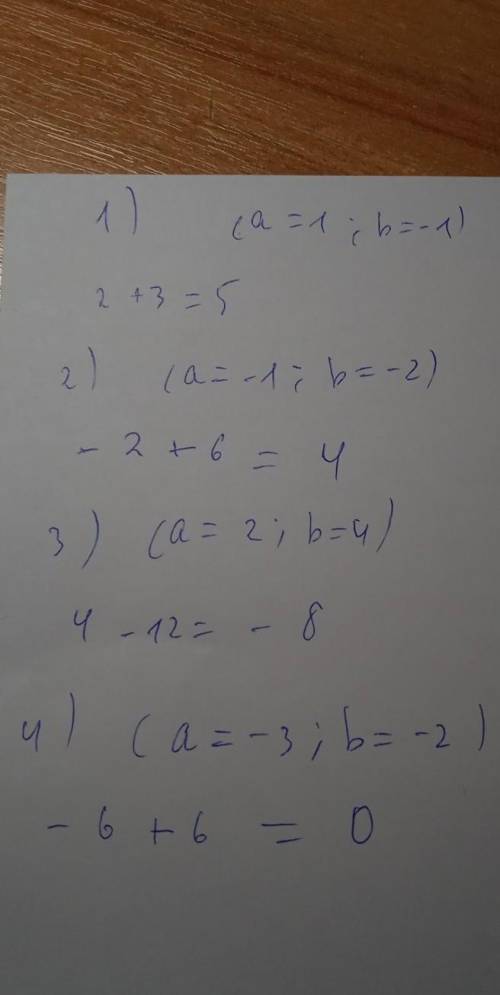 1) (a=1; b=-1)
2+3=5
2) (a=-1; b=-2)
-2+6=4
3) (a=2; b=4)
4-12=-8
4) (a=-3; b=-2)
-6+6=0